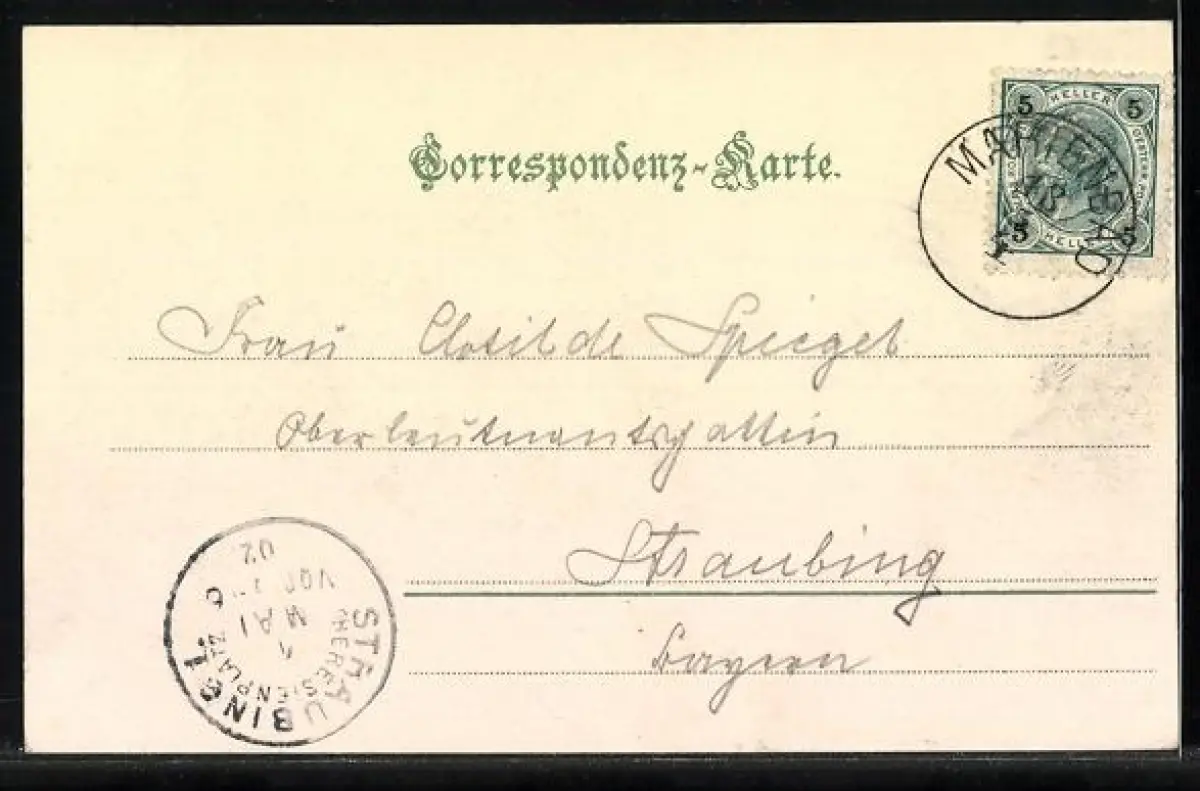 Correspondenz-Karte.
5 HELLER 5
5 HELLER 5
MARIENBAD
Frau Clotilde Spiegel
Oberleutnantsgattin
Straubing
Bayern
STRAUBING I.
THERESIENPLATZ
1
MAI
VOR
02